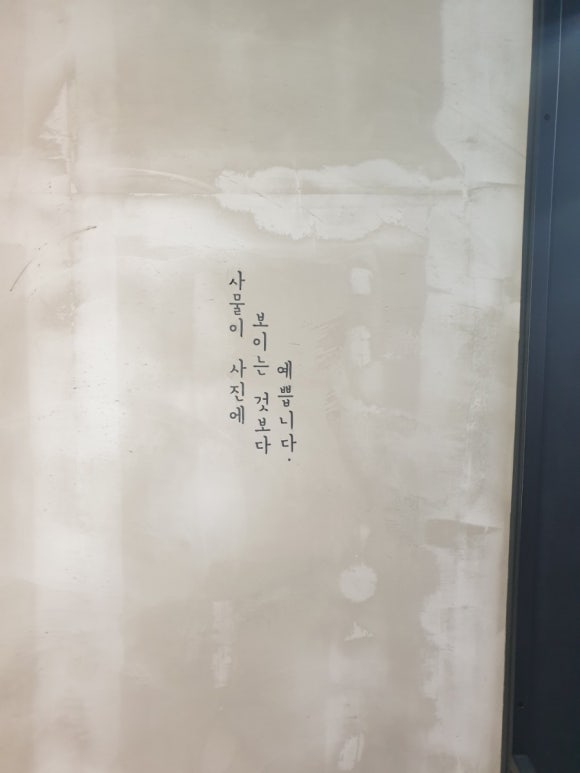 사물이 사진에
보이는 것보다
예쁩니다.